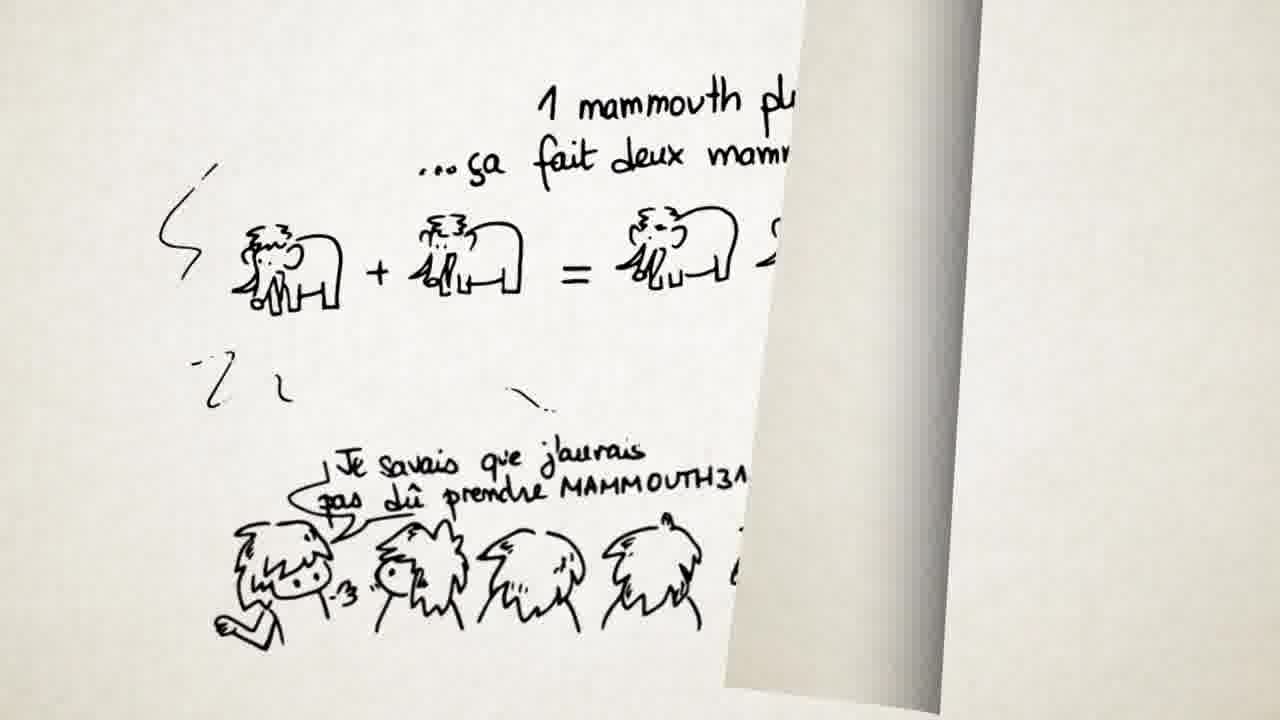 1 mammouth plu
...ça fait deux mamm
+ =
Je savais que j'aurais
pas dû prendre MAMMOUTH31